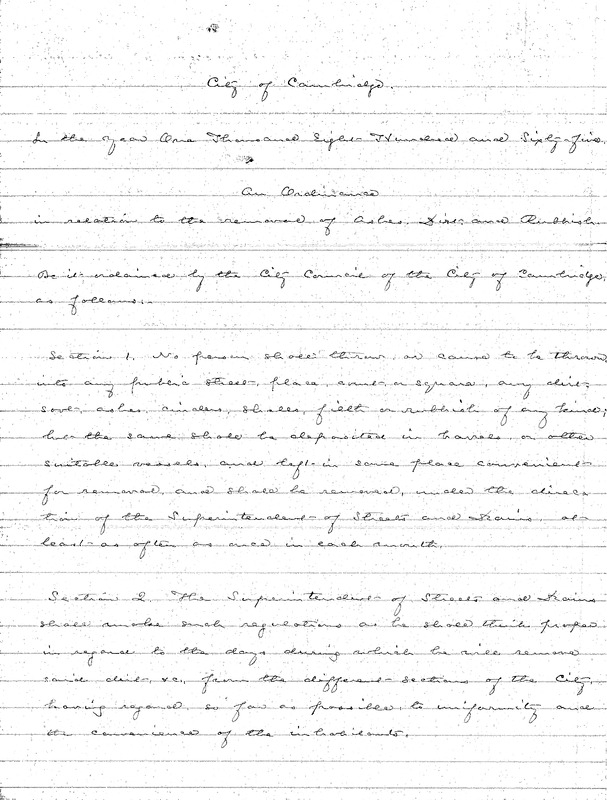 City of Cambridge.
In the year One Thousand Eight Hundred and Sixty-five.
An Ordinance
in relation to the removal of Ashes, Dirt and Rubbish.
Be it ordained by the City Council of the City of Cambridge,
as follows:-
Section 1. No person shall throw, or cause to be thrown,
into any public street, place, court or square, any dirt,
soot, ashes, cinders, shells, filth or rubbish of any kind;
but the same shall be deposited in barrels, or other
suitable vessels, and left in some place convenient
for removal, and shall be removed, under the direc
tion of the Superintendent of Streets and Drains at
least as often as once in each month.
Section 2. The Superintendent of Streets and Drains
shall make such regulations as he shall think proper
in regard to the days during which he will remove
said dirt, &c, from the different sections of the City,
having regard, so far as possible, to uniformity and
the convenience of the inhabitants.